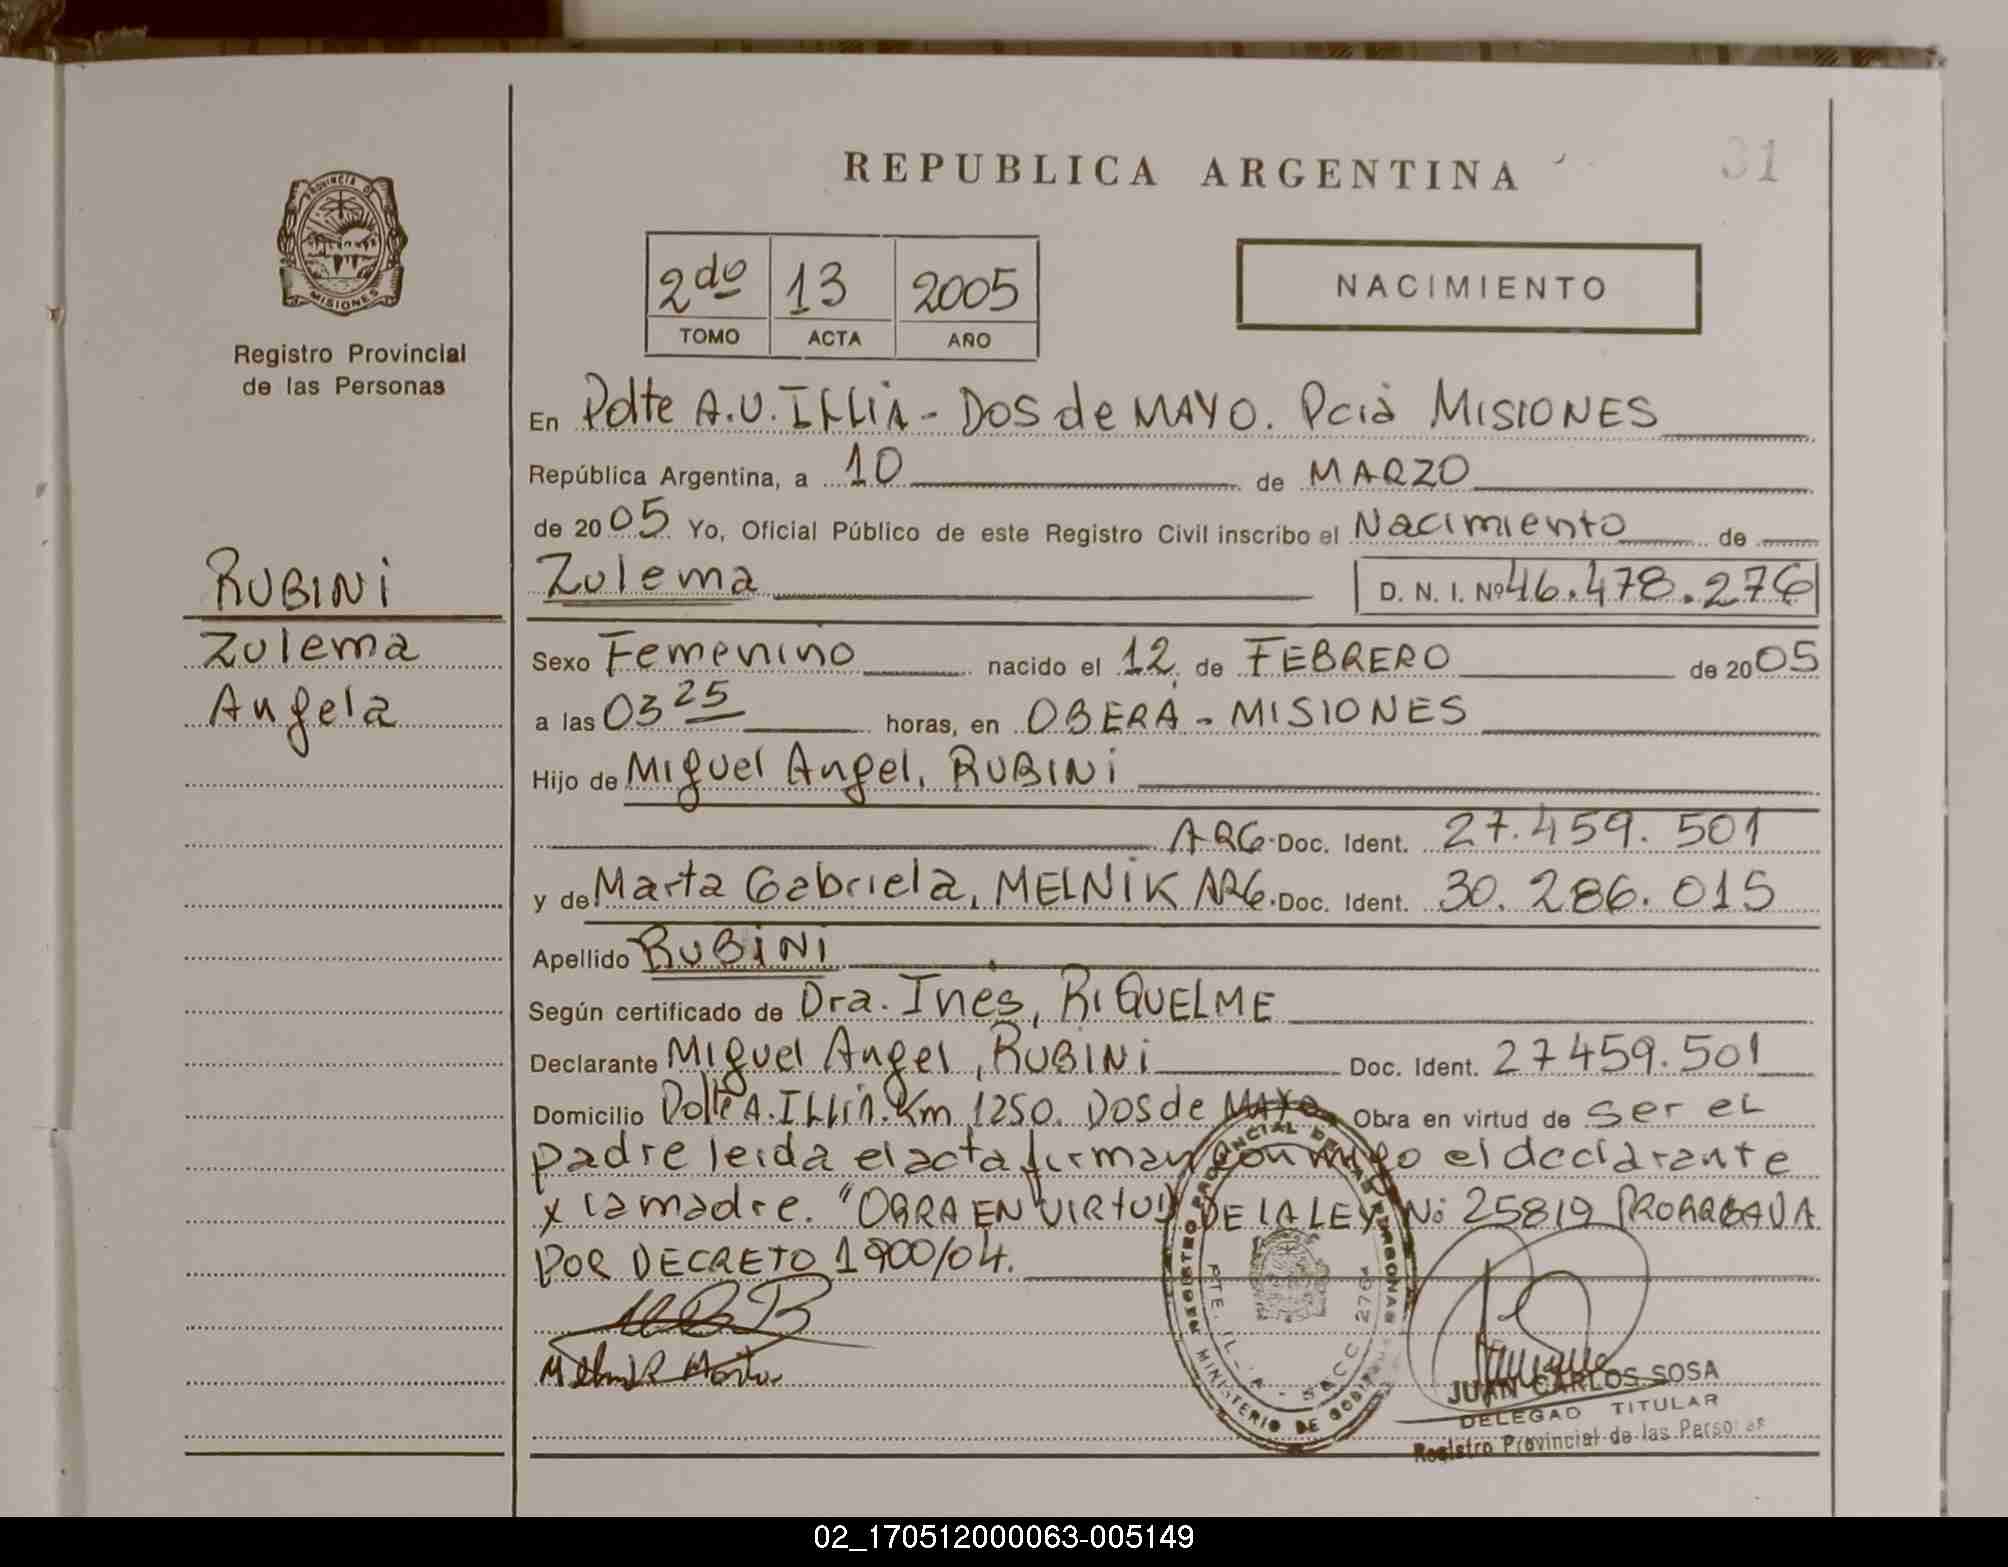 REPUBLICA ARGENTINA
31
PROVINCIA DE
MISIONES
Registro Provincial
de las Personas
2do 13 2005
TOMO ACTA AÑO
NACIMIENTO
En Pdte A.U. ILLIA - DOS de MAYO. Pcia MISIONES
República Argentina, a 10 de MARZO
de 2005 Yo, Oficial Público de este Registro Civil inscribo el Nacimiento de
RUBINI
Zulema
Angela
Zulema D. N. I. Nº 46.478.276
Sexo Femenino nacido el 12 de FEBRERO de 2005
a las 03 25 horas, en OBERÁ - MISIONES
Hijo de Miguel Angel, RUBINI
ARG. Doc. Ident. 27.459.501
y de Marta Gabriela, MELNIK ARG. Doc. Ident. 30.286.015
Apellido RUBINI
Según certificado de Dra. Inés, RIQUELME
Declarante Miguel Angel, RUBINI Doc. Ident. 27459.501
Domicilio Pdte A. ILLIA. Km 1250. DOS de MAYO Obra en virtud de ser el
padre leida el acta firman conmigo el declarante
y la madre. "OBRA EN VIRTUD DE LA LEY Nº 25819 PRORROGADA
POR DECRETO 1900/04.
Melnik Marta
REGISTRO PROVINCIAL DE LAS PERSONAS
MINISTERIO DE
JUAN CARLOS SOSA
DELEGADO TITULAR
Registro Provincial de las Personas
02_170512000063-005149